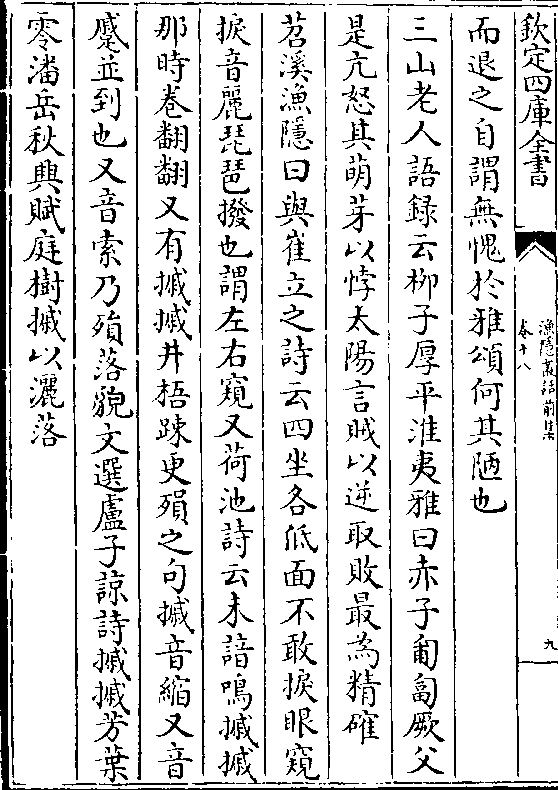 欽定四庫全書
漁隱叢話前集
卷十八
九
而退之自謂無愧於雅頌何其陋也
三山老人語録云栁子厚平淮夷雅曰赤子匍匐厥父
是亢怒其萌芽以悖太陽言賊以逆取敗最為精確
苕溪漁隱曰與崔立之詩云四坐各低面不敢捩眼窺
捩音麗琵琶撥也謂左右窺又荷池詩云未諳鳴摵摵
那時卷翻翻又有摵摵井梧踈更殞之句摵音縮又音
蹙並到也又音索乃殞落貌文選盧子諒詩摵摵芳葉
零潘岳秋興賦庭樹摵以灑落